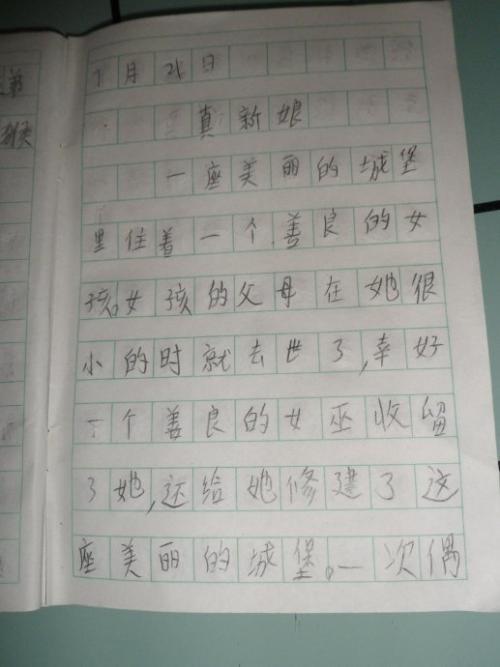 弟
猴
7月26日
真新娘
一座美丽的城堡
里住着一个善良的女
孩。女孩的父母在她很
小的时就去世了,幸好
一个善良的女巫收留
了她,还给她修建了这
座美丽的城堡。一次偶